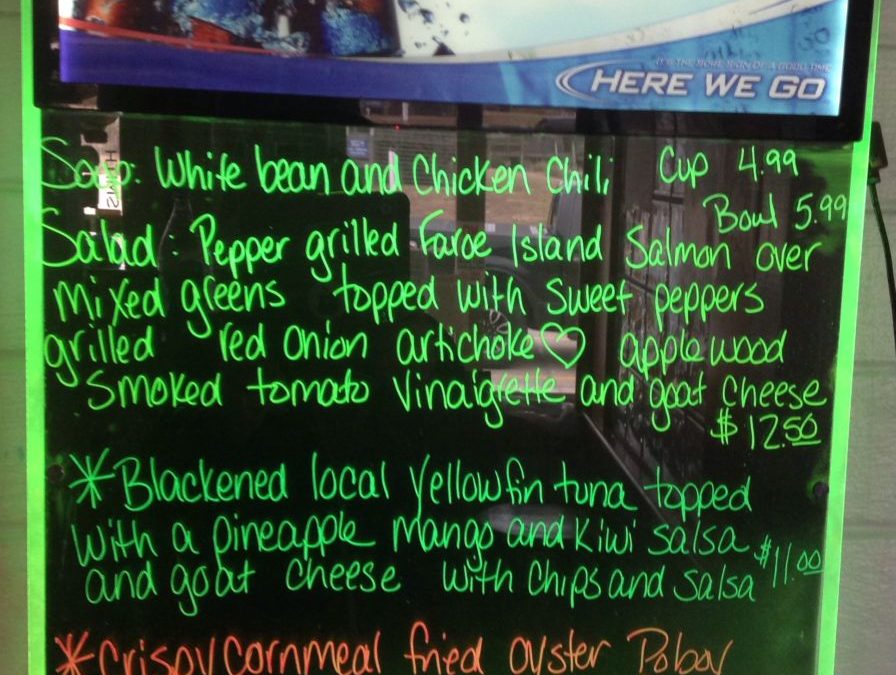 HERE WE GO
Soup: White bean and Chicken Chili Cup 4.99
Bowl 5.99
Salad: Pepper grilled Faroe Island Salmon over
mixed greens topped with sweet peppers
grilled red onion artichoke♡ applewood
smoked tomato vinaigrette and goat cheese
$12.50
*Blackened local yellowfin tuna topped
with a pineapple mango and Kiwi salsa
and goat cheese with chips and salsa $11.00
*Crispy cornmeal fried oyster Poboy